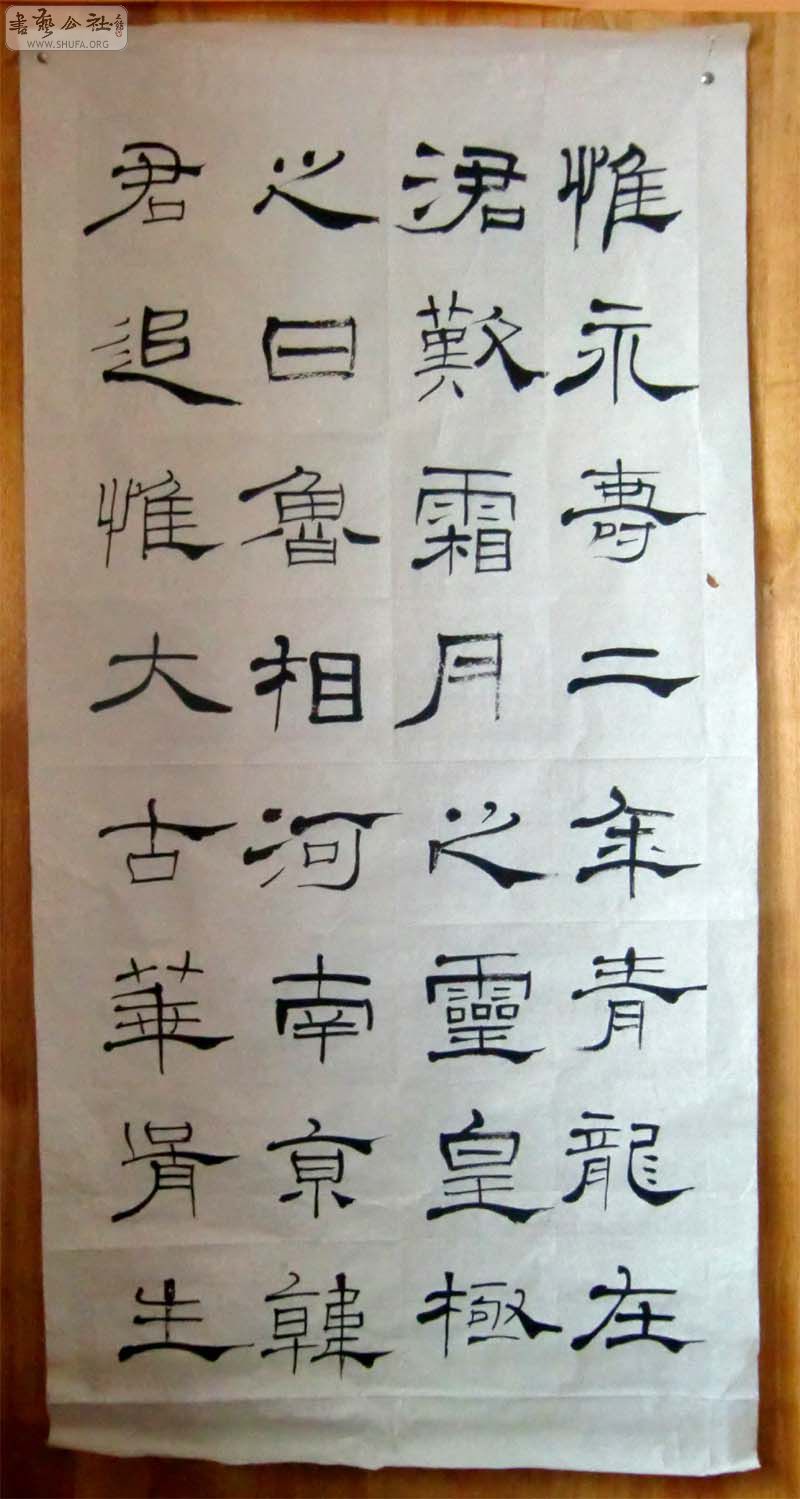 惟永壽二年青龍在
涒歎霜月之靈皇極
之日魯相河南京韓
君追惟大古華胥生
書藝公社
WWW.SHUFA.ORG